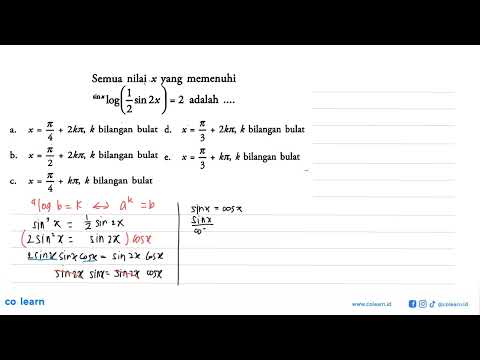 Semua nilai x yang memenuhi
sin x log(1/2 sin 2x) = 2 adalah ....
a. x = π/4 + 2kπ, k bilangan bulat
d. x = π/3 + 2kπ, k bilangan bulat
b. x = π/2 + 2kπ, k bilangan bulat
e. x = π/3 + kπ, k bilangan bulat
c. x = π/4 + kπ, k bilangan bulat
ᵃlog b = k ⇔ aᵏ = b
sin²x = 1/2 sin 2x
(2 sin²x = sin 2x) cos x
2 sin x sin x cos x = sin 2x cos x
sin 2x sin x = sin 2x cos x
sin x = cos x
sin x
co
co learn
www.colearn.id
@colearn.id